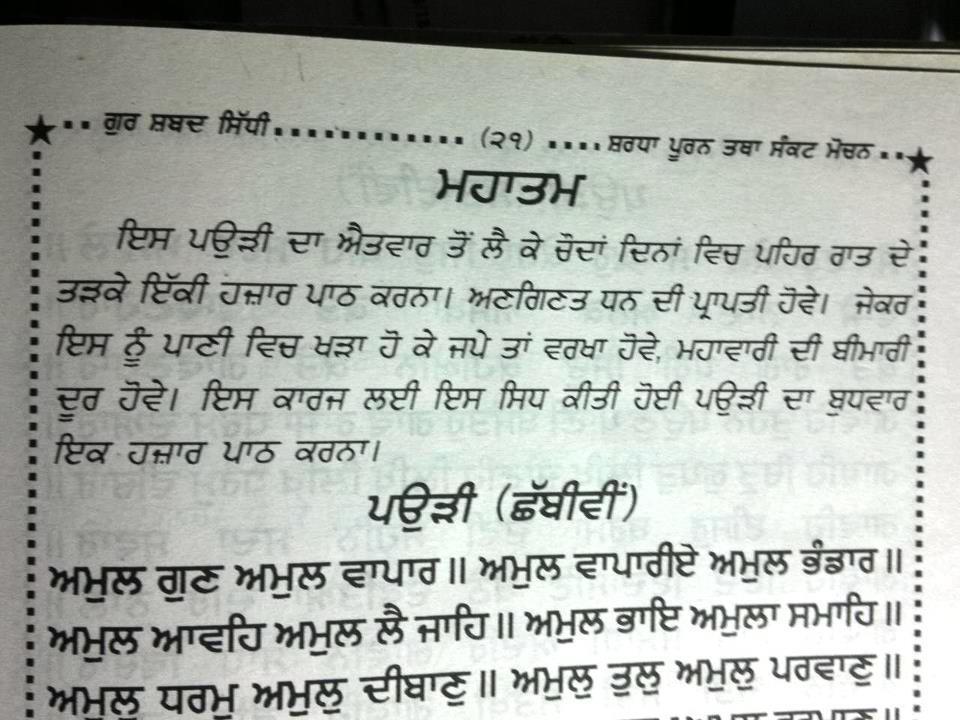 ਗੁਰ ਸ਼ਬਦ ਸਿੱਧੀ.............(੨੧).....ਸ਼ਰਧਾ ਪੂਰਨ ਤਥਾ ਸੰਕਟ ਮੋਚਨ
ਮਹਾਤਮ
ਇਸ ਪਉੜੀ ਦਾ ਐਤਵਾਰ ਤੋਂ ਲੈ ਕੇ ਚੌਦਾਂ ਦਿਨਾਂ ਵਿਚ ਪਹਿਰ ਰਾਤ ਦੇ
ਤੜਕੇ ਇੱਕੀ ਹਜ਼ਾਰ ਪਾਠ ਕਰਨਾ। ਅਣਗਿਣਤ ਧਨ ਦੀ ਪ੍ਰਾਪਤੀ ਹੋਵੇ। ਜੇਕਰ
ਇਸ ਨੂੰ ਪਾਣੀ ਵਿਚ ਖੜਾ ਹੋ ਕੇ ਜਪੇ ਤਾਂ ਵਰਖਾ ਹੋਵੇ, ਮਹਾਵਾਰੀ ਦੀ ਬੀਮਾਰੀ
ਦੂਰ ਹੋਵੇ। ਇਸ ਕਾਰਜ ਲਈ ਇਸ ਸਿਧ ਕੀਤੀ ਹੋਈ ਪਉੜੀ ਦਾ ਬੁਧਵਾਰ
ਇਕ ਹਜ਼ਾਰ ਪਾਠ ਕਰਨਾ।
ਪਉੜੀ (ਛੱਬੀਵੀਂ)
ਅਮੁਲ ਗੁਣ ਅਮੁਲ ਵਾਪਾਰ॥ ਅਮੁਲ ਵਾਪਾਰੀਏ ਅਮੁਲ ਭੰਡਾਰ॥
ਅਮੁਲ ਆਵਹਿ ਅਮੁਲ ਲੈ ਜਾਹਿ॥ ਅਮੁਲ ਭਾਇ ਅਮੁਲਾ ਸਮਾਹਿ॥
ਅਮੁਲੁ ਧਰਮੁ ਅਮੁਲੁ ਦੀਬਾਣੁ॥ ਅਮੁਲੁ ਤੁਲੁ ਅਮੁਲੁ ਪਰਵਾਣੁ॥